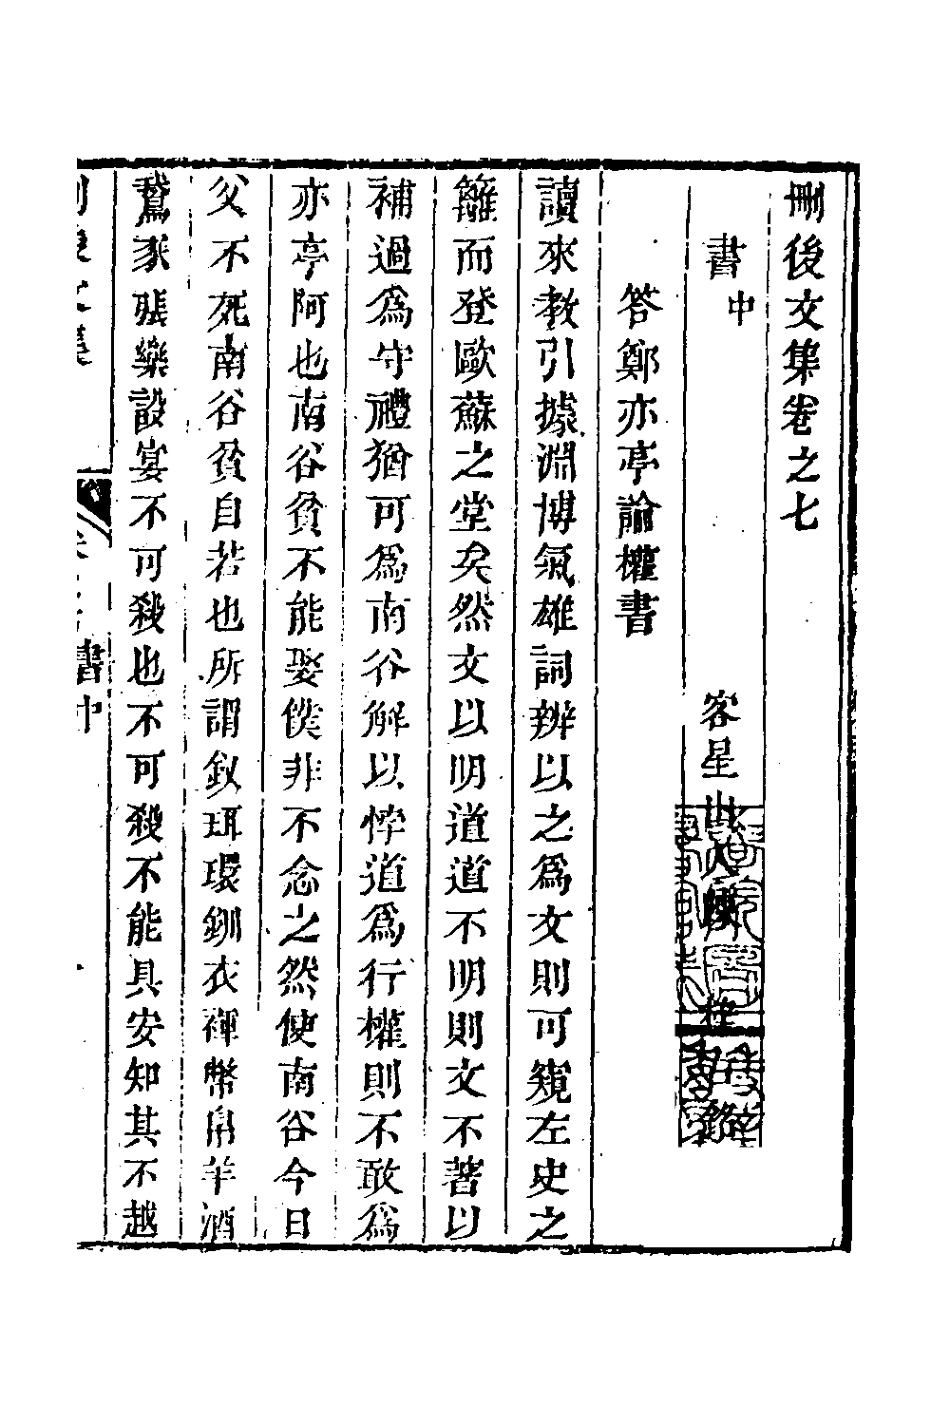 刪後文集卷之七
書中
客星山人陳梓
答鄭亦亭論權書
讀來教引據淵博氣雄詞辨以之爲文則可窺左史之
籬而登歐蘇之堂矣然文以明道道不明則文不著以
補過爲守禮猶可爲南谷解以悖道爲行權則不敢爲
亦亭阿也南谷貧不能娶僕非不念之然使南谷今日
父不死南谷貧自若也所謂釵珥環釧衣褌幣帛羊酒
鵞豕張樂設宴不可殺也不可殺不能具安知其不越
刪後文集 卷之七 書中